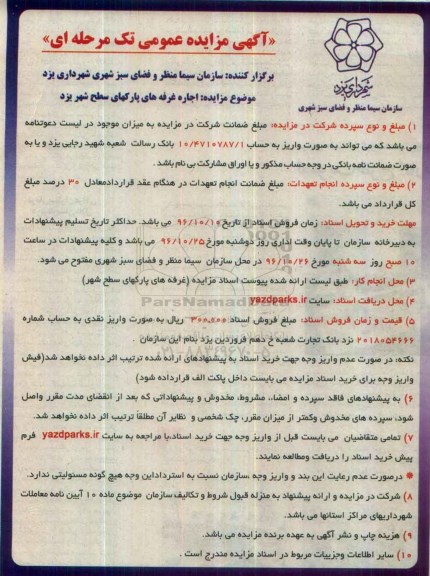 «آگهی مزایده عمومی تک مرحله ای»
برگزار کننده: سازمان سیما منظر و فضای سبز شهری شهرداری یزد
موضوع مزایده: اجاره غرفه های پارکهای سطح شهر یزد
شهرداری یزد
سازمان سیما منظر و فضای سبز شهری
۱) مبلغ و نوع سپرده شرکت در مزایده: مبلغ ضمانت شرکت در مزایده به میزان موجود در لیست دعوتنامه
می باشد که می تواند به صورت واریز به حساب ۱۰/۴۷۱۰۷۸۷/۱ بانک رسالت شعبه شهید رجایی یزد و یا به
صورت ضمانت نامه بانکی در وجه حساب مذکور و یا اوراق مشارکت بی نام باشد .
۲) مبلغ و نوع سپرده انجام تعهدات: مبلغ ضمانت انجام تعهدات در هنگام عقد قراردادمعادل ۳۰ درصد مبلغ
کل قرارداد می باشد.
مهلت خرید و تحویل اسناد: زمان فروش اسناد از تاریخ ۹۶/۱۰/۱۰ می باشد. حداکثر تاریخ تسلیم پیشنهادات
به دبیرخانه سازمان تا پایان وقت اداری روز دوشنبه مورخ ۹۶/۱۰/۲۵ می باشد و کلیه پیشنهادات در ساعت
۱۰ صبح روز سه شنبه مورخ ۹۶/۱۰/۲۶ در محل سازمان سیما منظر و فضای سبز شهری مفتوح می شود.
۳) محل انجام کار: طبق لیست ارائه شده پیوست اسناد مزایده (غرفه های پارکهای سطح شهر)
ParsNamadData
۴) محل دریافت اسناد: سایت yazdparks.ir
۵) قیمت و زمان فروش اسناد: مبلغ فروش اسناد ۳۰۰,۰۰۰ ریال به صورت واریز نقدی به حساب شماره
۲۰۱۸۰۵۴۶۶۶ نزد بانک تجارت شعبه خ دهم فروردین یزد بنام این سازمان .
نکته: در صورت عدم واریز وجه جهت خرید اسناد به پیشنهادهای ارائه شده ترتیب اثر داده نخواهد شد(فیش
واریز وجه برای خرید اسناد مزایده می بایست داخل پاکت الف قرارداده شود)
۶) به پیشنهادهای فاقد سپرده و امضاء، مشروط، مخدوش و پیشنهاداتی که بعد از انقضای مدت مقرر واصل
شود، سپرده های مخدوش وکمتر از میزان مقرر، چک شخصی و نظایر آن مطلقاً ترتیب اثر داده نخواهد شد.
۷) تمامی متقاضیان می بایست قبل از واریز وجه جهت خرید اسناد،با مراجعه به سایت yazdparks.ir فرم
پیش خرید اسناد را دریافت ومطالعه نمایند.
* درصورت عدم رعایت این بند و واریز وجه ،سازمان نسبت به استرداداین وجه هیچ گونه مسئولیتی ندارد.
۸) شرکت در مزایده و ارائه پیشنهاد به منزله قبول شروط و تکالیف سازمان موضوع ماده ۱۰ آیین نامه معاملات
شهرداریهای مراکز استانها می باشد.
۹) هزینه چاپ و نشر آگهی به عهده برنده مزایده می باشد.
۱۰) سایر اطلاعات وجزییات مربوط در اسناد مزایده مندرج است .